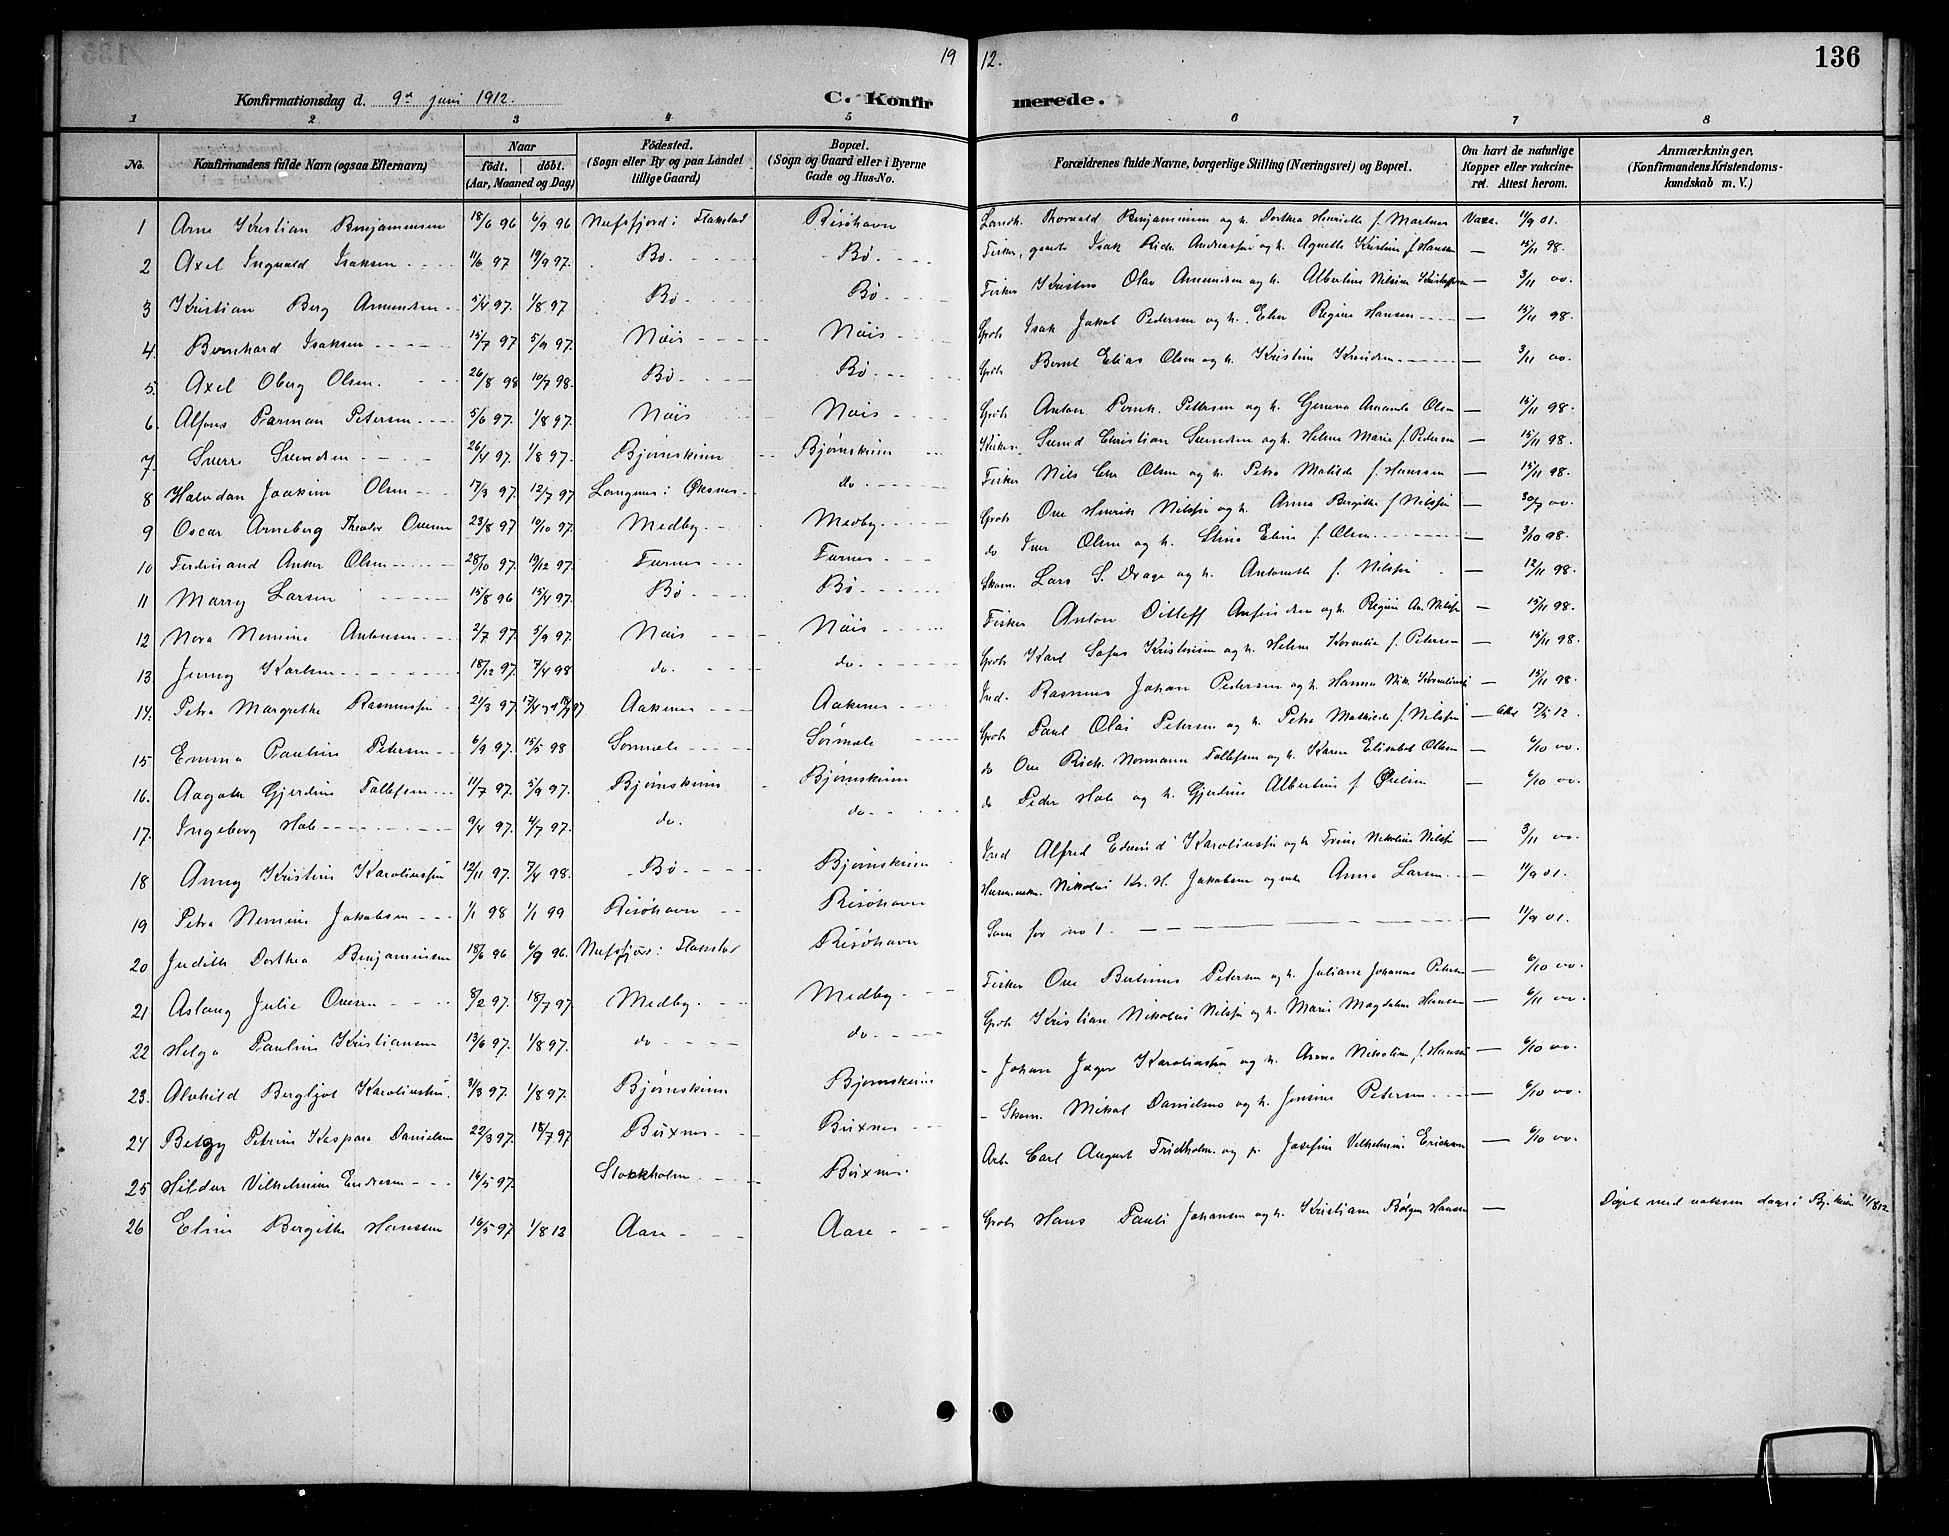 19 12.
136
Konfirmationsdag d. 9de juni 1912.
C. Konfirmerede.
1 2 3 4 5 6 7 8
No. Konfirmandens fulde Navn (ogsaa Efternavn) Naar født. døbt. (Aar, Maaned og Dag) Fødested. (Sogn eller By og paa Landet tillige Gaard) Bopæl. (Sogn og Gaard eller i Byerne Gade og Hus-No. Forældrenes fulde Navne, borgerlige Stilling (Næringsvei) og Bopæl. Om havt de naturlige Kopper eller vakcineret. Attest herom. Anmærkninger, (Konfirmandens Kristendomskundskab m. V.)
1 Arne Kristian Benjaminsen 18/6 96 6/9 96 Nufsfjord i Flakstad Risøhavn Landh. Thorvald Benjaminsen og h. Dorthea Henriette f. Martines Vacc. 11/9 01.
2 Axel Ingvald Isaksen 11/6 97 19/9 97. Bø Bø Fisker, Isak Rich. Andreassen og h. Agnette Kristine f. Hansen — 15/11 98.
3 Kristian Berg Amundsen 5/4 97. 1/8 97 Bø Bø Fisker Olav Amundsen og h. Albertine Nilsine — 3/11 00.
4. Bernhard Isaksen 15/7 97 5/9 97. Nöis Nöis Grb. Isak Jakob Pedersen og h. Elen Regine Hansen — 15/11 98.
5. Axel Oberg Olsen. 26/8 98 10/7 98. Bø Bø Grb. Bernt Elias Olsen og h. Kristine Knudsen — 3/11 00.
6. Alfons Parman Petersen 5/6 97. 1/8 97. Nöis Nöis Grb. Anton Bernh. Pettersen og h. Geneva Amanda Olsen — 15/11 98.
7. Sverre Svendsen 26/4 97. 1/8 97. Bjørnskinn Bjørnskinn Svend Christian Svendsen og h. Helene Marie f. Pedersen — 15/11 98.
8 Halvdan Joakim Olsen 17/3 97. 12/7 97 Langnes i Øksnes do Fisker Nils Olsen og h. Petra Matilde f. Hanssen — 15/11 98.
9 Oscar Arneberg Theodor Ovesen 23/8 97 10/10 97. Medby Medby Grb. Ove Henrik Nilssen og h. Anna Bergitte f. Nilssen — 30/7 00.
10 Ferdinand Anker Olsen 28/10 97. 19/12 97. Furnes Furnes do Iver Olsen og h. Stina Elina f. Olsen — 3/10 98.
11 Marry Larsen 15/8 96 15/4 97. Bø Bø Skom. Lars S. Drage og h. Antonette f. Nilssen — 12/11 98.
12 Nora Nemine Antonsen 2/7 97. 5/9 97. Nöis Nöis Fisker Anton Ditleff og h. Regine An. Nilssen — 15/11 98.
13 Jenny Karlsen 18/12 97. 7/4 98 do. do Grb. Karl Sofus Kristensen og h. Helene Kornelia f. Petersen — 15/11 98.
14. Petra Margrethe Rasmussen 21/3 97. Aaknes Aaknes Ind. Rasmus Johan Pedersen og h. Hanna Nik. — 15/11 98.
15 Emma Pauline Petersen 6/9 97. 15/5 98 Sørmela Sørmela Grb. Paul Olai Petersen og h. Petra Mathilde f. Nilssen
16. Aagoth Gjerdine Tollefsen 11/7 97. 5/9 97. Bjørnskinn Bjørnskinn do Ove Rich. Normann Tollefsen og h. Karen Elisabet Olsen — 6/10 00.
17. Ingeborg Hole 9/4 97. 4/7 97. do. do do Peder Hole og h. Gjerdine Albertine f. — 6/10 00.
18 Anny Kristine Karoliussen 12/11 97. 7/4 98. Bø Bjørnskinn Ind Alfred Edvind Karoliussen og h. Trine Nikoline Nilssen — 3/11 00.
19 Petra Nemine Jakobsen 1/1 98 1/1 99 Risøhavn Risøhavn Nikolai Kr. H. Jakobsen og Anna Larsen — 11/9 01.
20 Judith Dorthea Benjaminsen 18/6 96 6/9 96. Nufsfjord i Flakstad Risøhavn Som for no 1. — 11/9 01.
21 Aslaug Julie Ovesen 8/2 97. 18/7 97 Medby. Medby Fisker Ove Berlinus Petersen og h. Juliane Johannes Petersen — 6/10 00.
22 Helga Pauline Kristiansen 13/6 97. 1/8 97. do do Grb. Kristian Nikolai Nilssen og h. Marie Magdalene Hansen — 6/11 00.
23. Alvhild Bergljot Karoliussen. 31/3 97. 1/8 97. Bjørnskinn Bjørnskinn - Johan Jæger Karoliussen og h. Anna Nikoline f. Hansen — 6/10 00.
24 Betzy Petrine Kaspara Danielsen 22/3 97. 18/7 97 Buxnes Buxnes - Skom. Mikal Danielsen og h. Jensine Petersen — 6/10 00.
25 Hildur Vilhelmine 16/5 97. Stockholm Buxnes. Arb. Carl August Fridholm og p. Josefine Vilhelmine Ericksen — 6/10 00.
26 Eline Bergitte Hanssen 16/5 97 1/8 12 Aase Aase Grb. Hans Pauli Johansen og h. Kristiane Hansen — Døpt med voksen